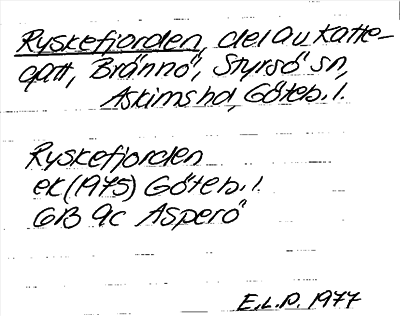 Ryskefjorden, del av Katte-
gatt, Brännö, Styrsö sn,
Askims hd, Göteb. l.
Ryskefjorden
ek (1975) Göteb. l.
6B 9c Asperö
E.L.P. 1977